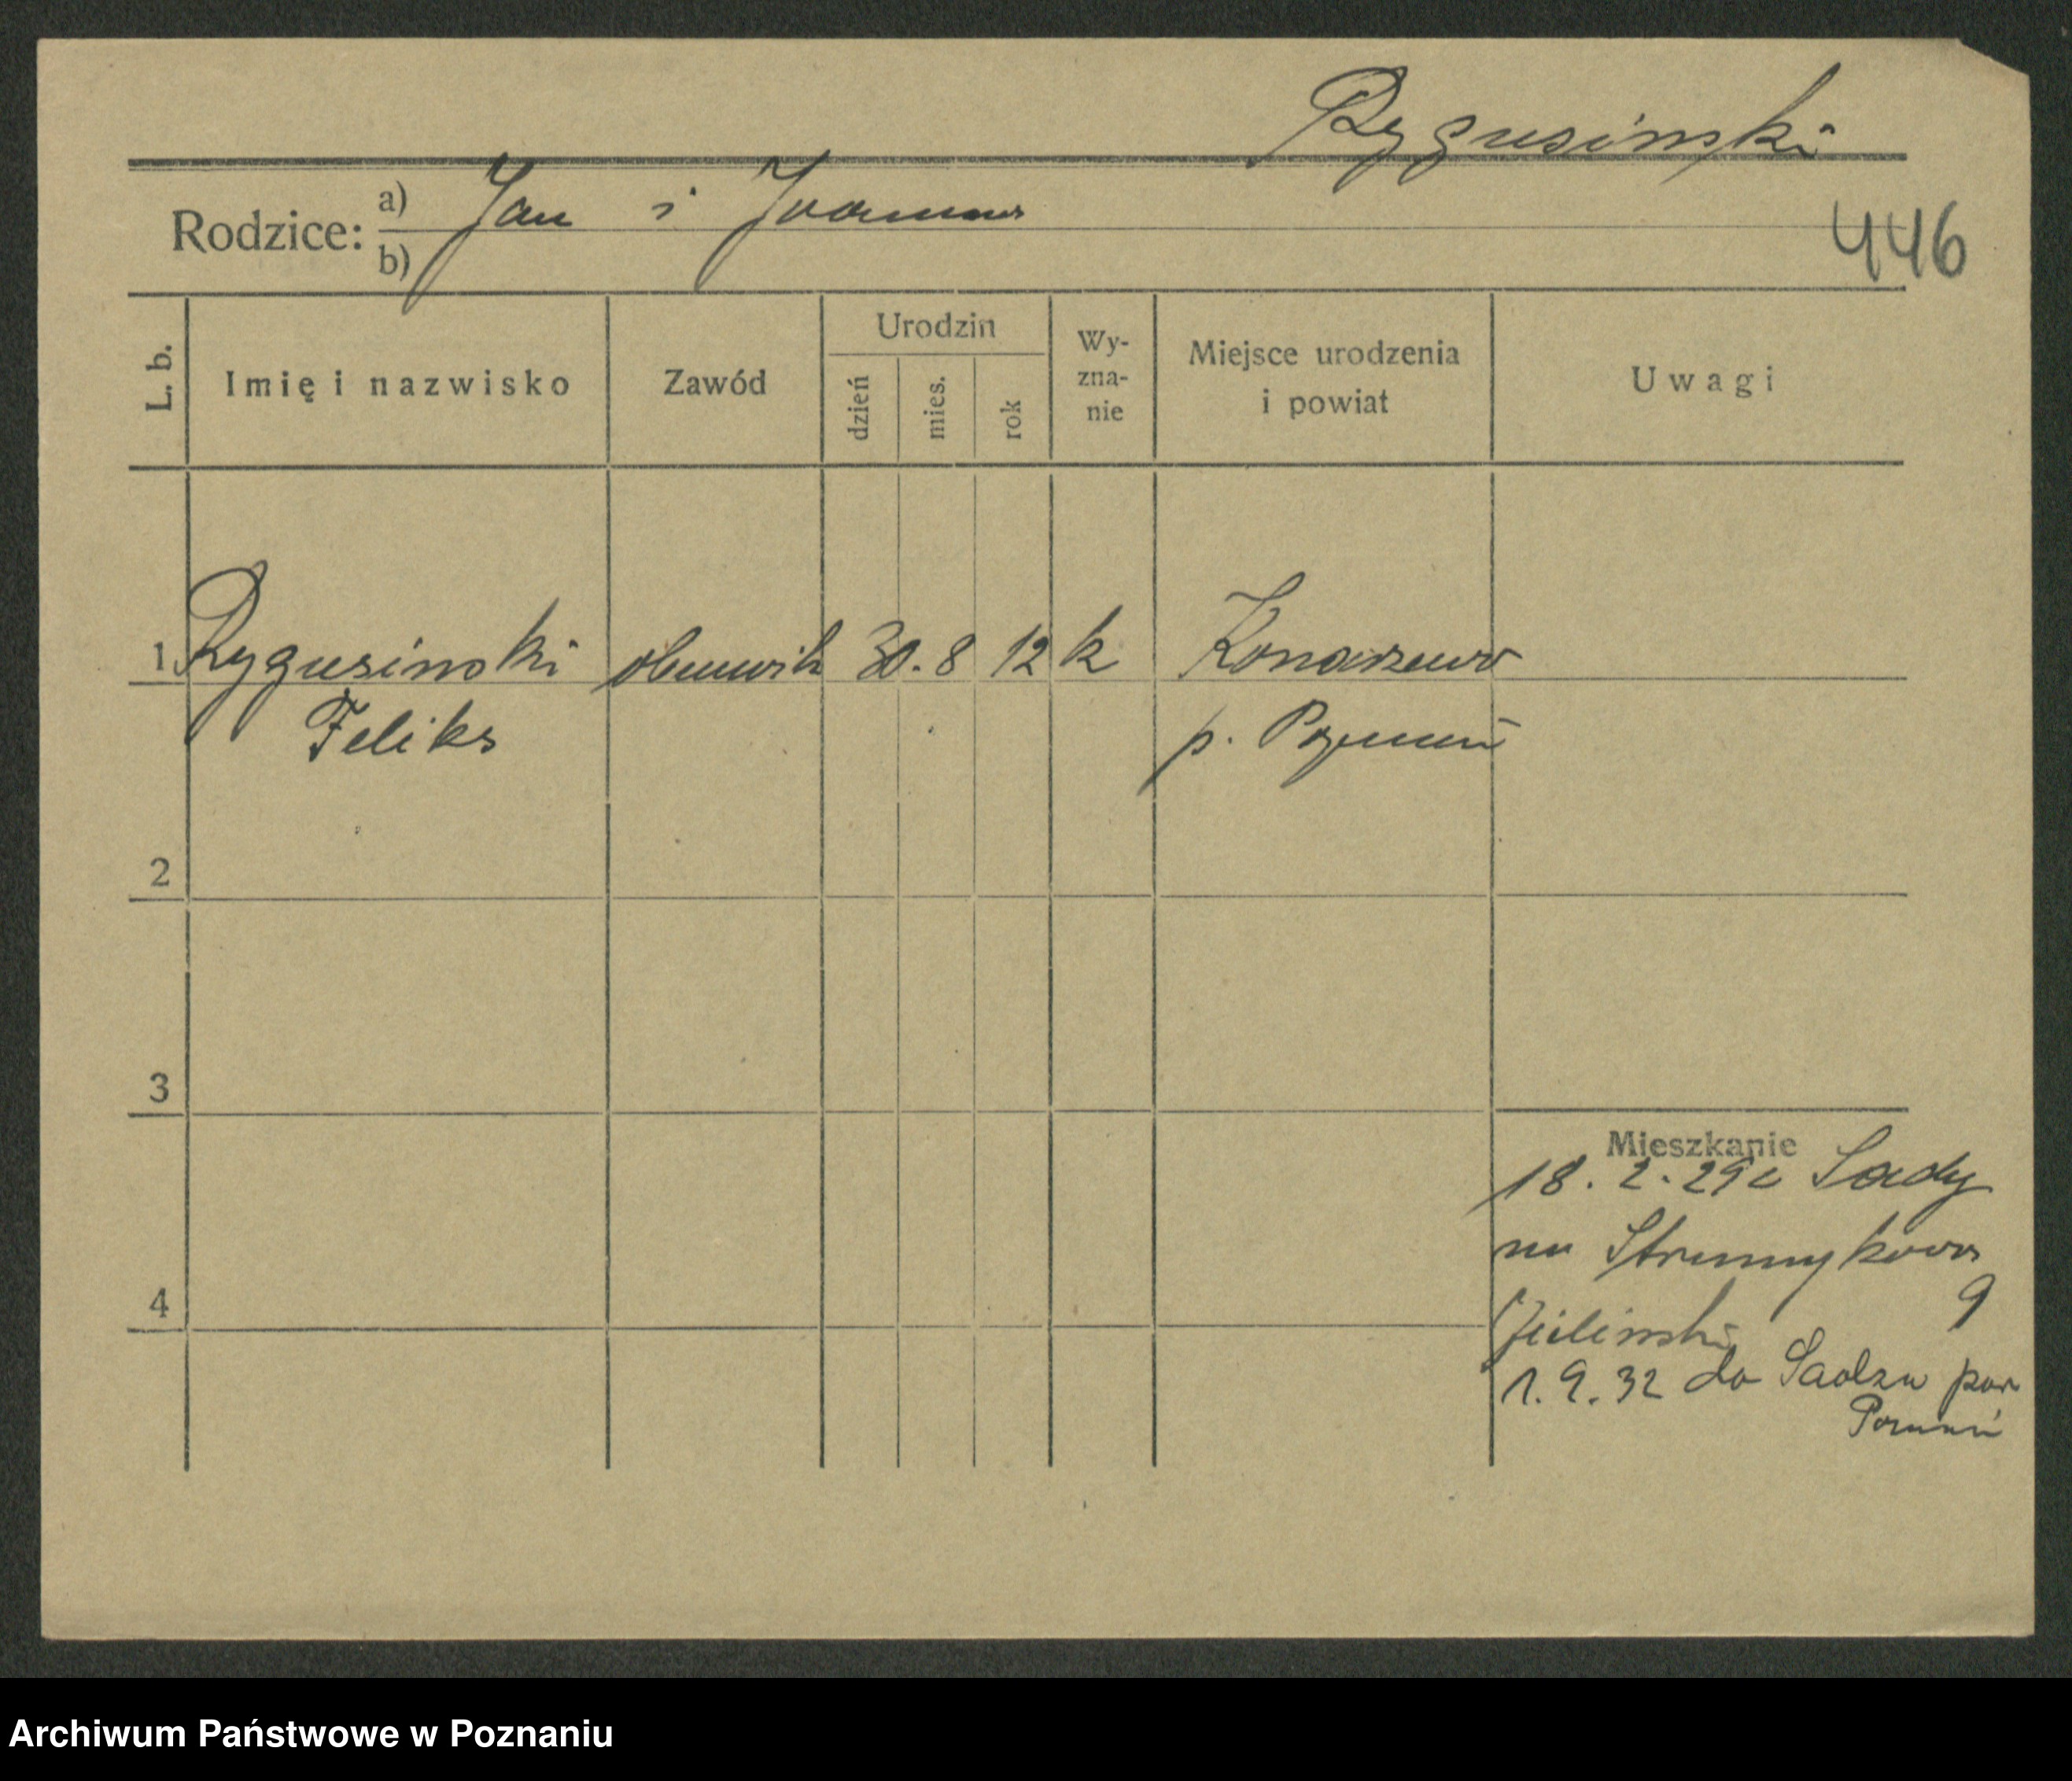 Rygusinski
Rodzice: a) Jan i Joanna
b)
446
L. b.
Imię i nazwisko
Zawód
Urodzin
dzień
mies.
rok
Wy-
zna-
nie
Miejsce urodzenia
i powiat
Uwagi
1 Rygusinski obuwnik 30. 8 12 k Konarzewo
Feliks p. Poznań
2
3
Mieszkanie
18. 2. 29 z Sady
na Strumykowa
9
4
Zieliński
1. 9. 32 do pow
Poznań
Archiwum Państwowe w Poznaniu